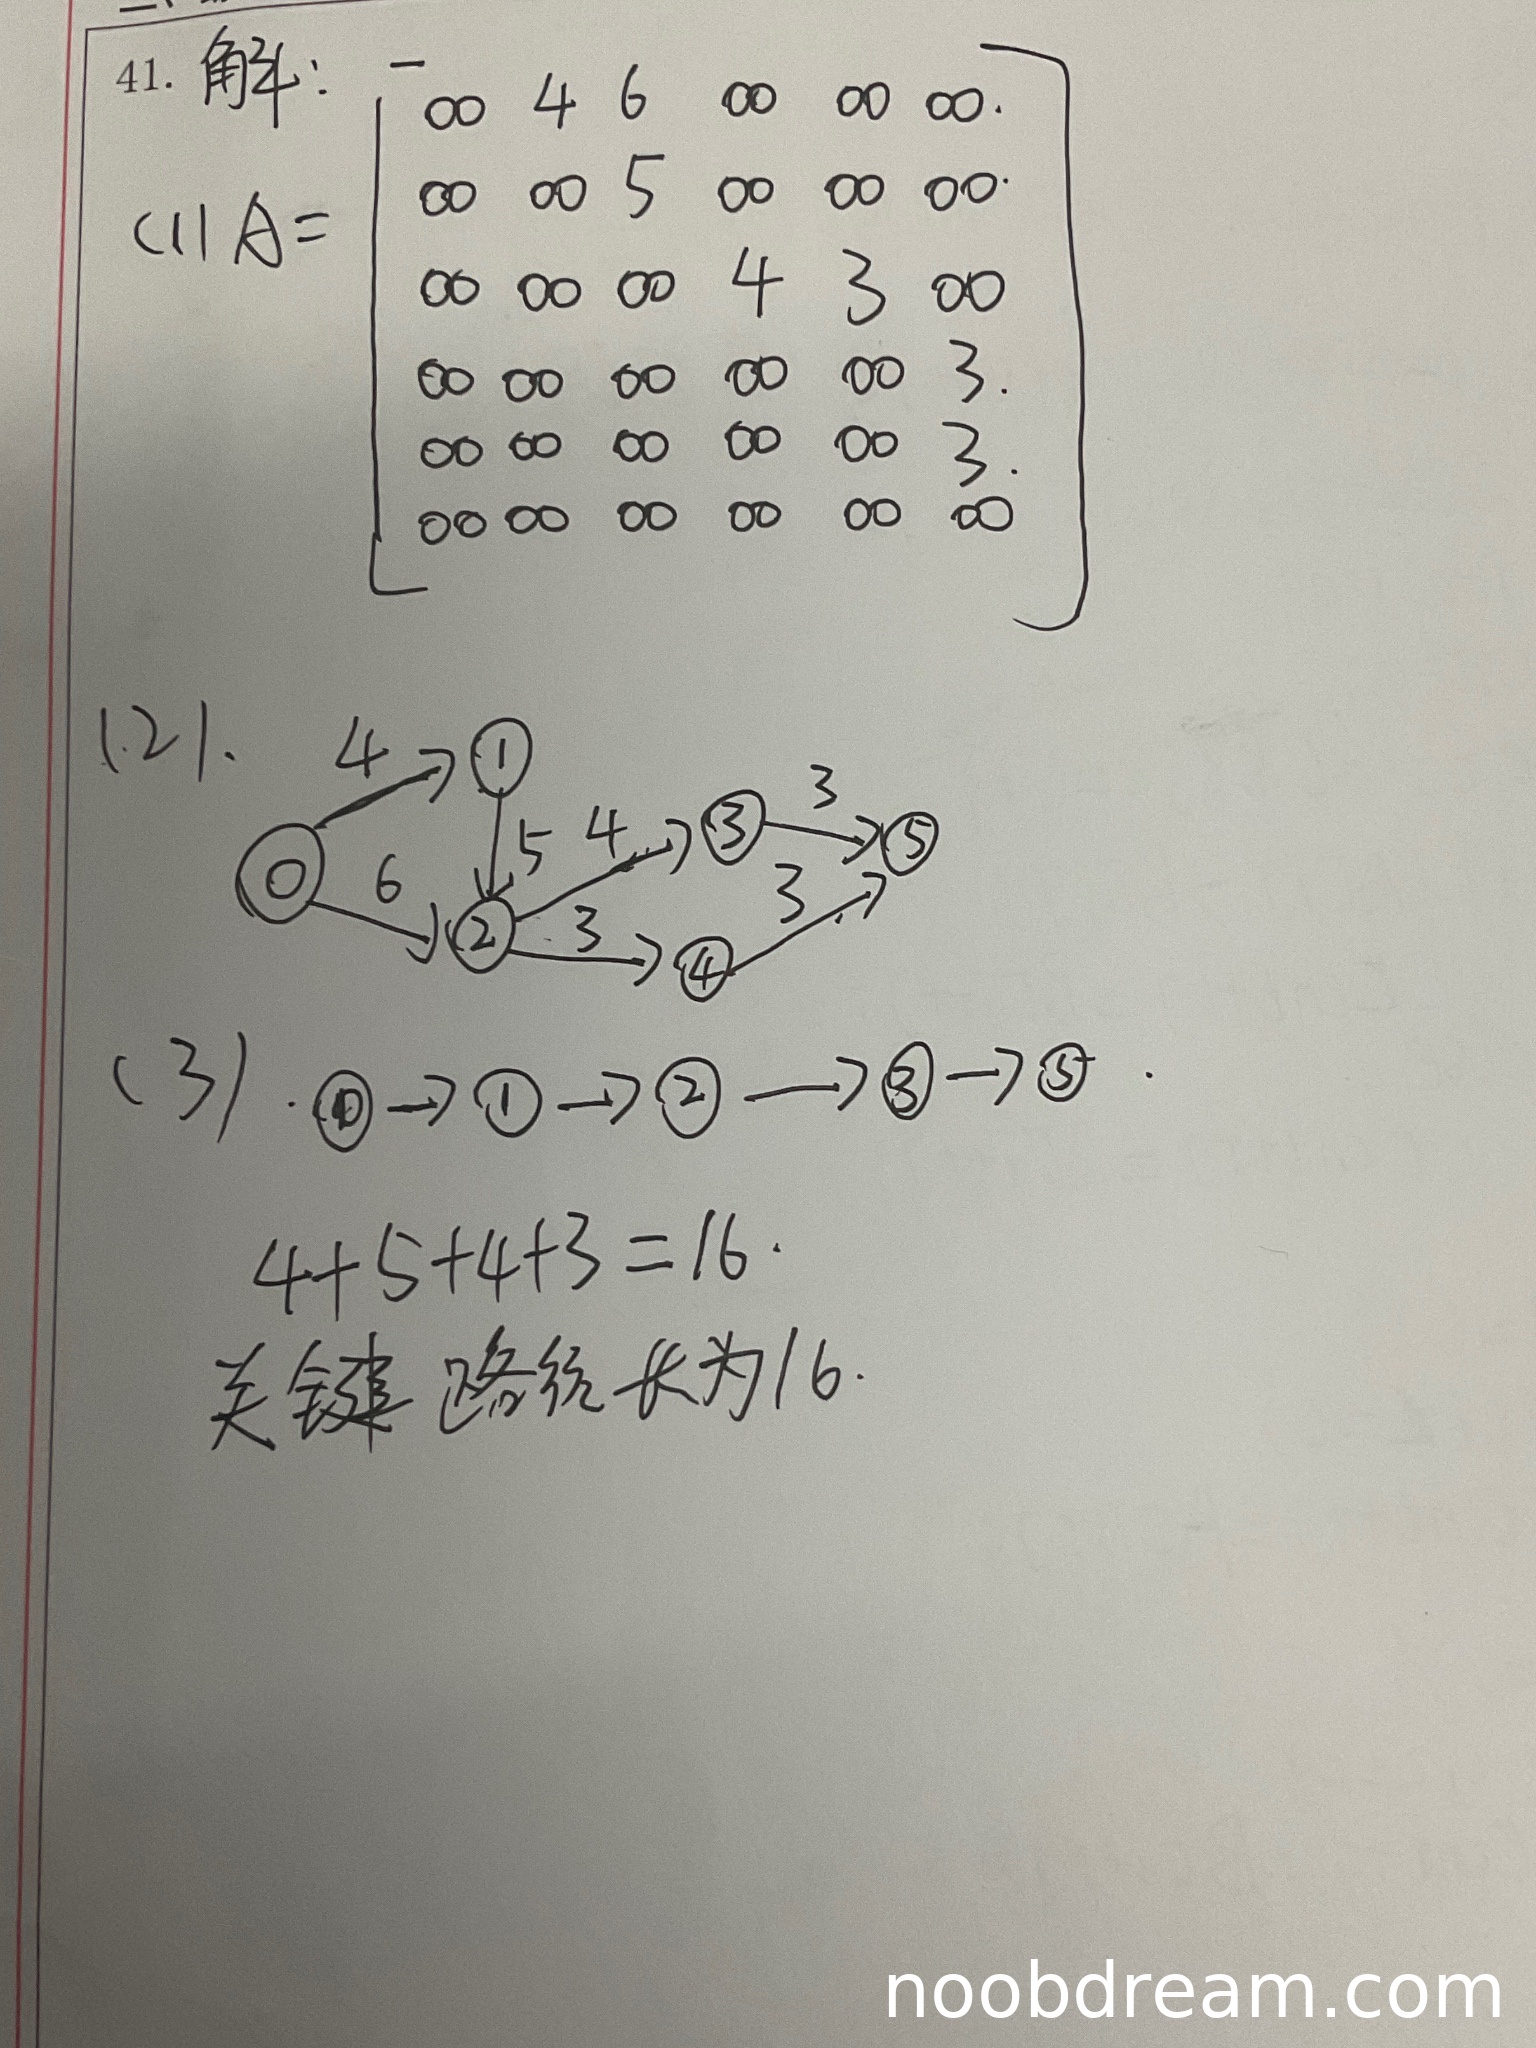 41. 解:
(1) A=
∞ 4 6 ∞ ∞ ∞.
∞ ∞ 5 ∞ ∞ ∞.
∞ ∞ ∞ 4 3 ∞
∞ ∞ ∞ ∞ ∞ 3.
∞ ∞ ∞ ∞ ∞ 3.
∞ ∞ ∞ ∞ ∞ ∞
(2).
4 ① 3
5 4 ③ ⑤
⓪ 6 3
② 3 ④
(3). ⓪→①→②→③→⑤.
4+5+4+3=16.
关键路径长为16.
noobdream.com